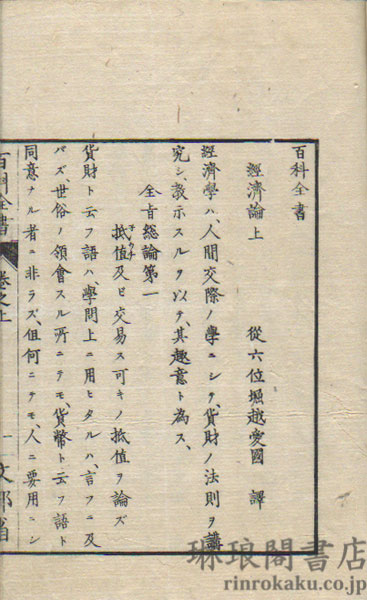 百科全書
經濟論上
從六位堀越愛國 譯
經濟學ハ、人間交際ノ學ニシテ、貨財ノ法則ヲ講
究シ、教示スルヲ以テ、其趣意ト為ス、
全旨總論第一
抵値及ビ交易ス可キノ抵値ヲ論ズ
貨財ト云フ語ハ、學問上ニ用ヒタルハ、言フニ及
バズ、世俗ノ領會スル所ニテモ、貨幣ト云フ語ト
同意ナル者ニ非ラズ、但何ニテモ、人ニ要用ニシ
百科全書 卷之上 一 文部省
琳琅閣書店
rinrokaku.co.jp